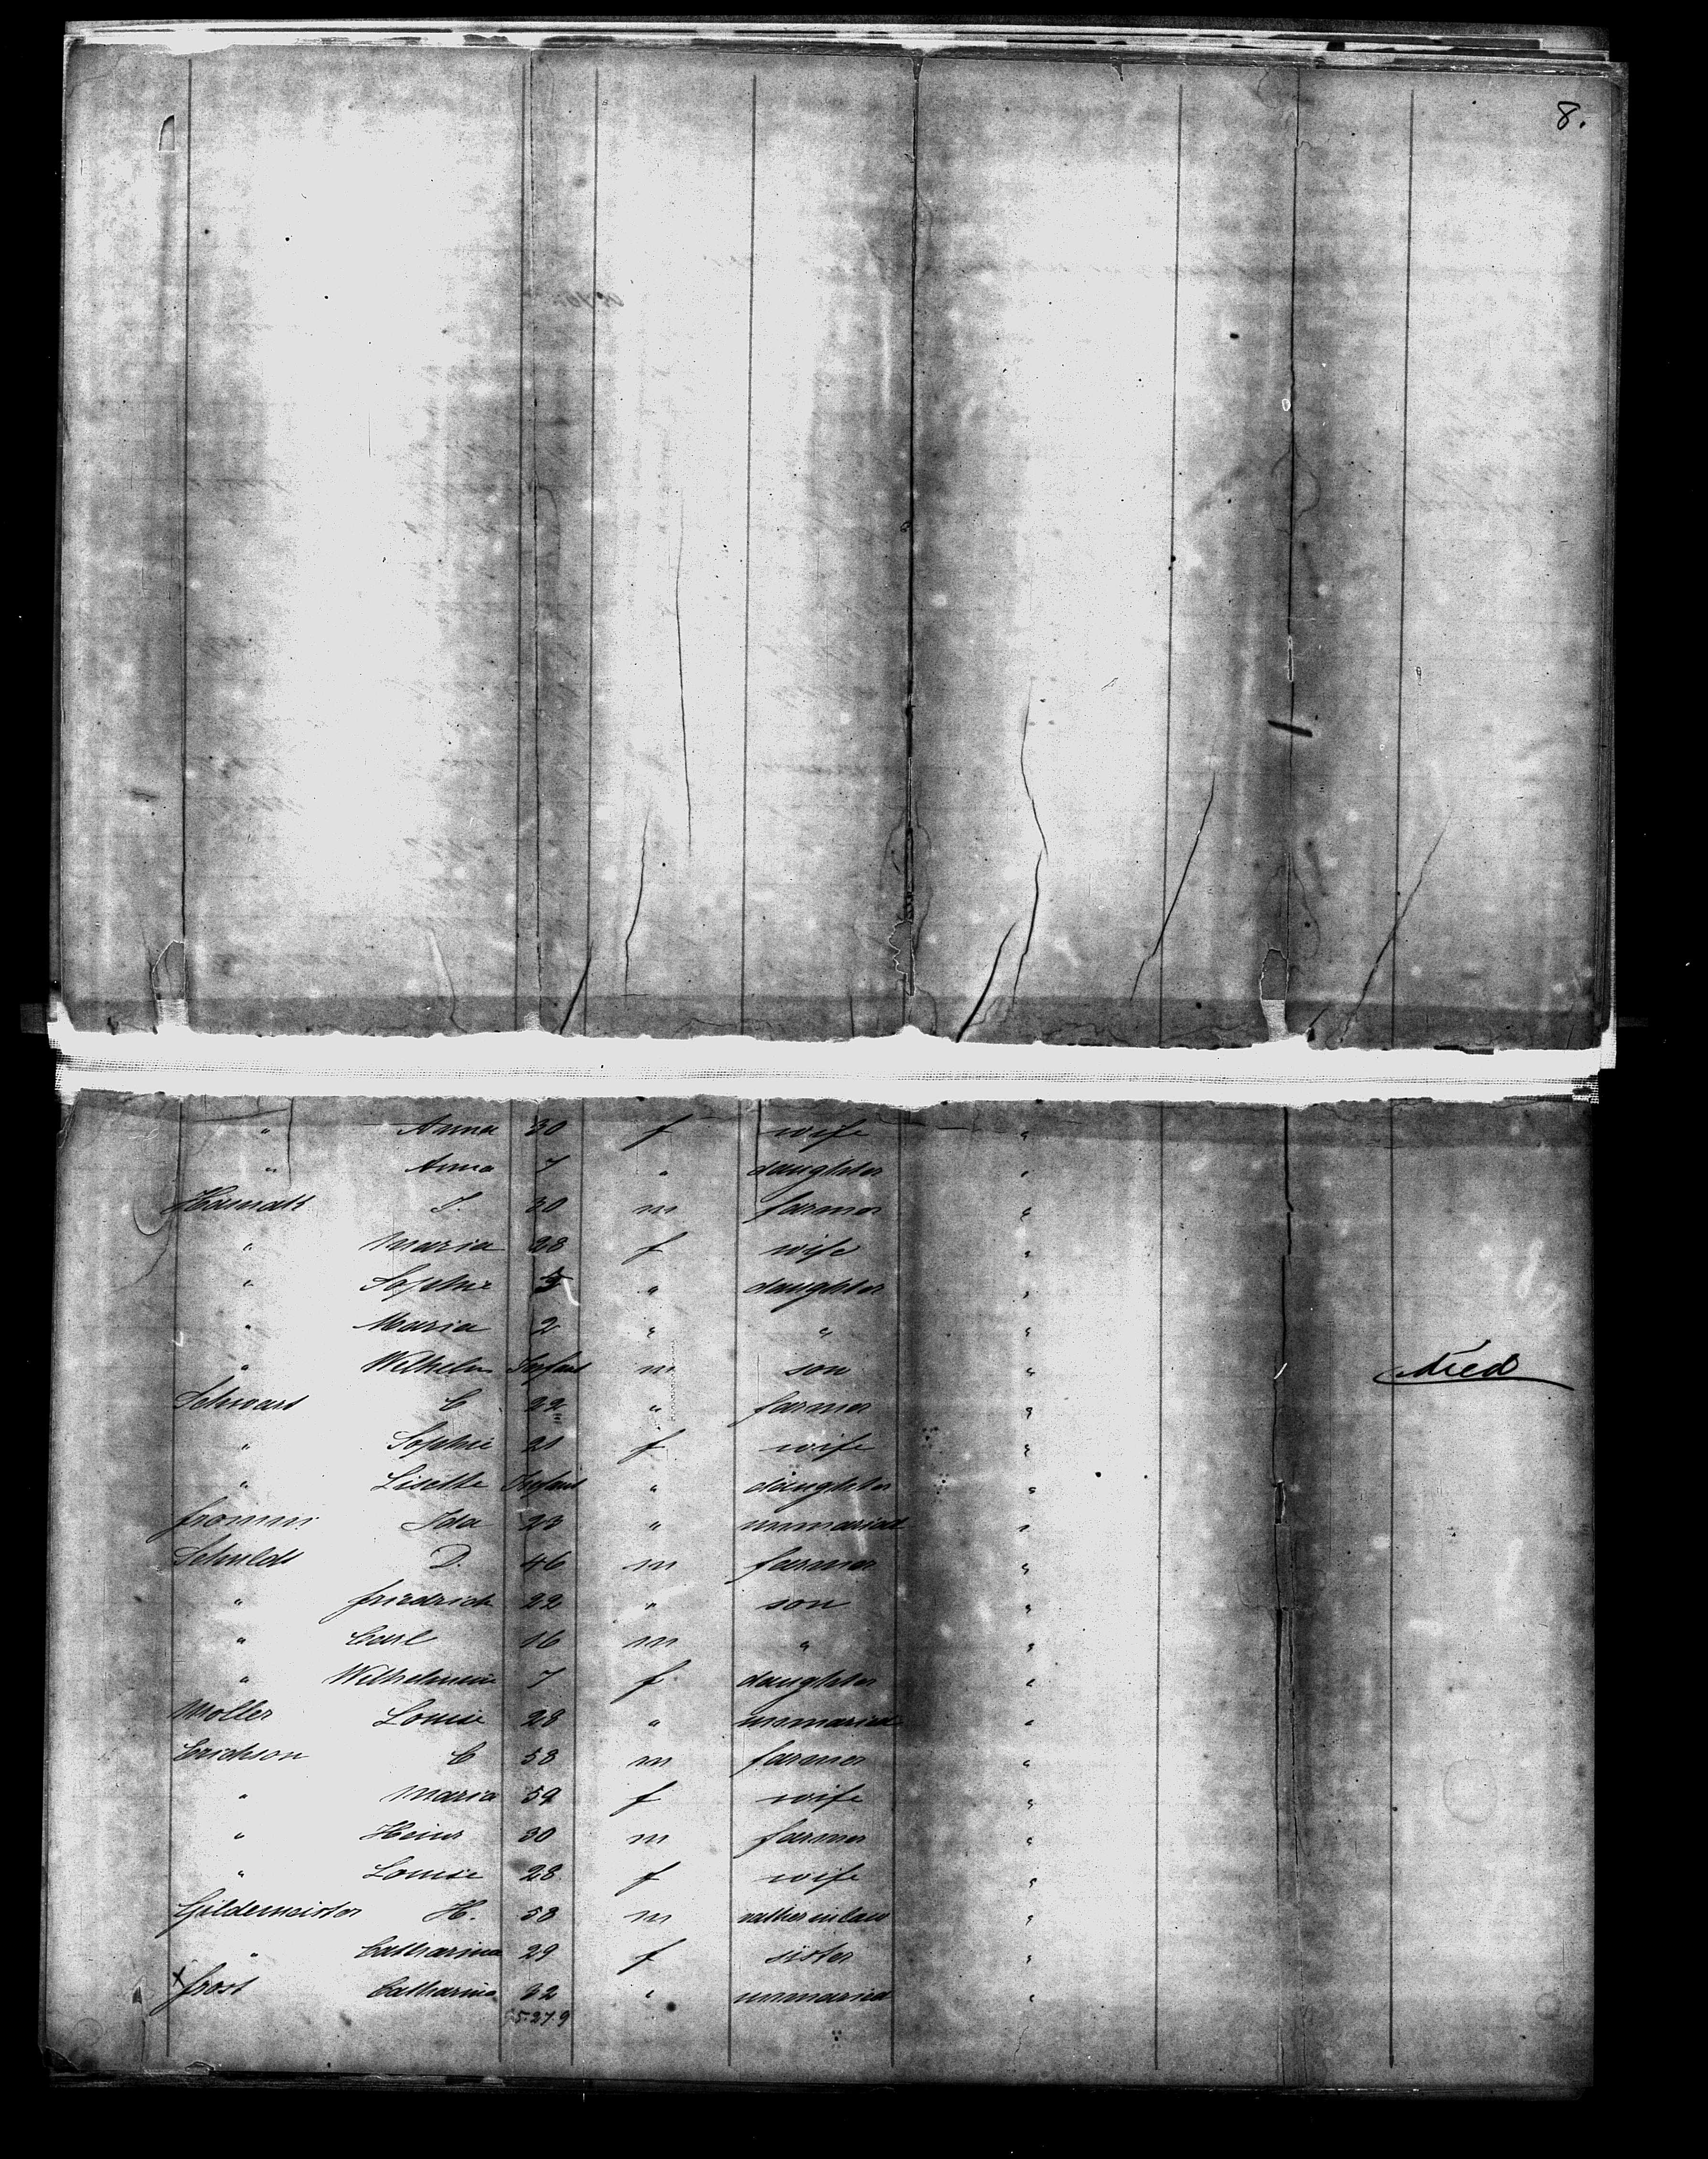 8.
" Anna 30 f wife "
" Anna 7 " daughter "
J. 30 m farmer "
" Maria 28 f wife "
" Sophie 5 " daughter "
" Maria 2 " " "
" Wilhelm Infant m son " died
Schwart C 22 " farmer "
" Sophie 21 f wife "
" Lisette Infant " daughter "
fromm Ida 23 " unmaried "
Schuldt D. 46 m farmer "
" friedrich 22 " son "
" Carl 16 m " "
" Wilhelmine 7 f daughter "
Moller Louise 28 " unmaried "
Erickson C 58 m farmer "
" Maria 59 f wife "
" Heinr 30 m farmer "
" Louise 28 f wife "
Gildemeister H. 58 m father in law "
" Catharina 29 f sister "
x frost Catharina 32 " unmaried "